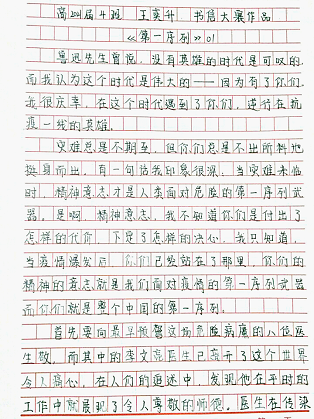 高204届4班 王奕升 书信大赛作品
《第一序列》01
鲁迅先生曾说，没有英雄的时代是可叹的，
而我认为这个时代是伟大的——因为有了你们。
我很庆幸，在这个时代遇到了你们，逆行在抗
疫一线的英雄。
灾难总是不期至，但你们总是不出所料地
挺身而出，有一句话我印象很深，当灾难来临
时，精神意志才是人类面对危险的第一序列武
器。是啊，精神意志，我不知道你们是付出了
怎样的代价，下定了怎样的决心，我只知道，
当疫情爆发后，你们已经站在了那里，你们的
精神的意志就是我们面对疫情的第一序列武器
而你们就是整个中国的第一序列。
首先要向最早报警这场危险病魔的八位医
生敬，而其中的李文亮医生已离开了这个世界
令人痛心，在人们的追述中，发现他在平时的
工作中就展现了令人尊敬的师德。医生在传染